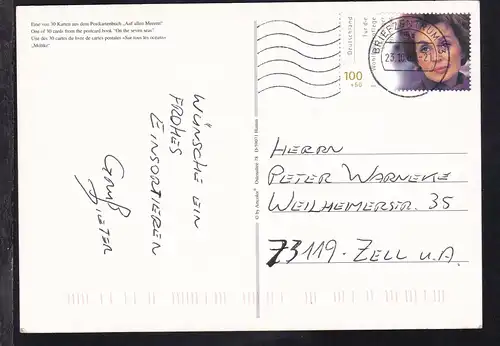 Eine von 30 Karten aus dem Postkartenbuch „Auf allen Meeren“
One of 30 cards from the postcard book "On the seven seas"
Une des 30 cartes du livre de cartes postales «Sur tous les océans»
WÜNSCHE EIN
FROHES
EINSORTIEREN
GRUß
DIETER
Deutschland
für die
100
+50
BRIEFZENTRUM
HERRN
PETER WARNEKE
WEILHEIMERSTR. 35
73119 - ZELL U.A.